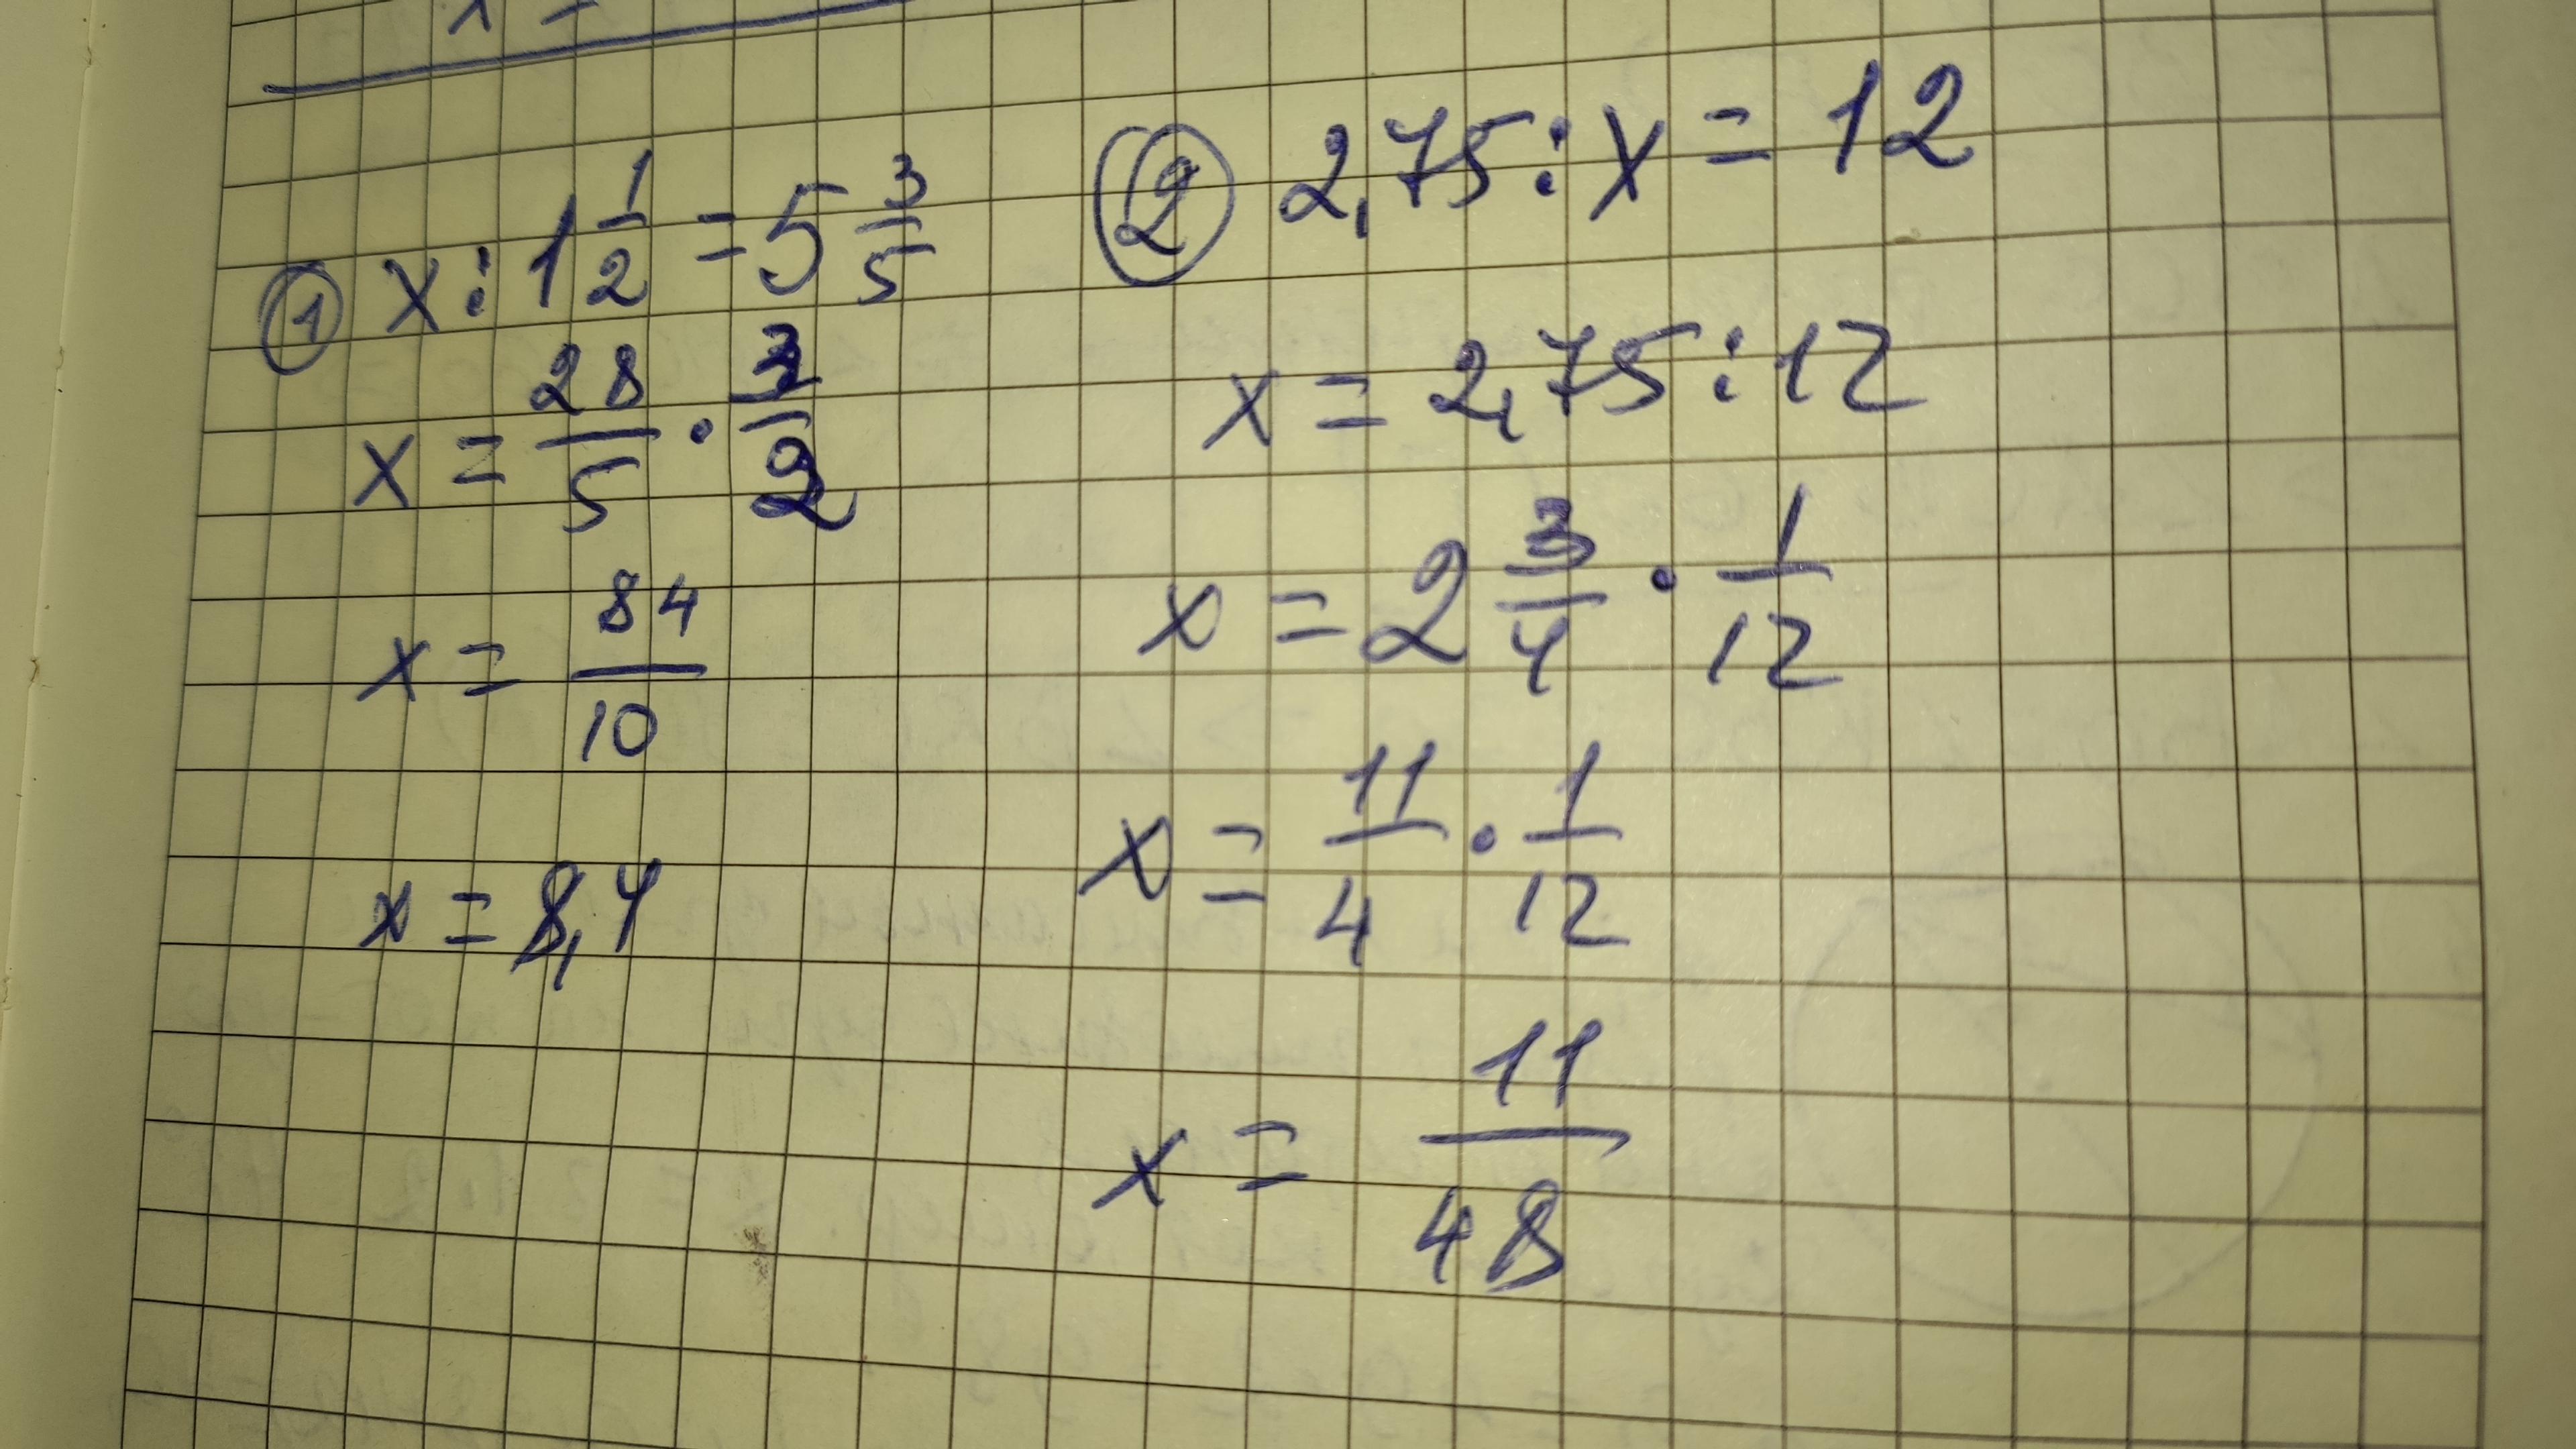 x =
① x : 1 1/2 = 5 3/5
x = 28/5 · 3/2
x = 84/10
x = 8,4
② 2,75 : x = 12
x = 2,75 : 12
x = 2 3/4 · 1/12
x = 11/4 · 1/12
x = 11/48